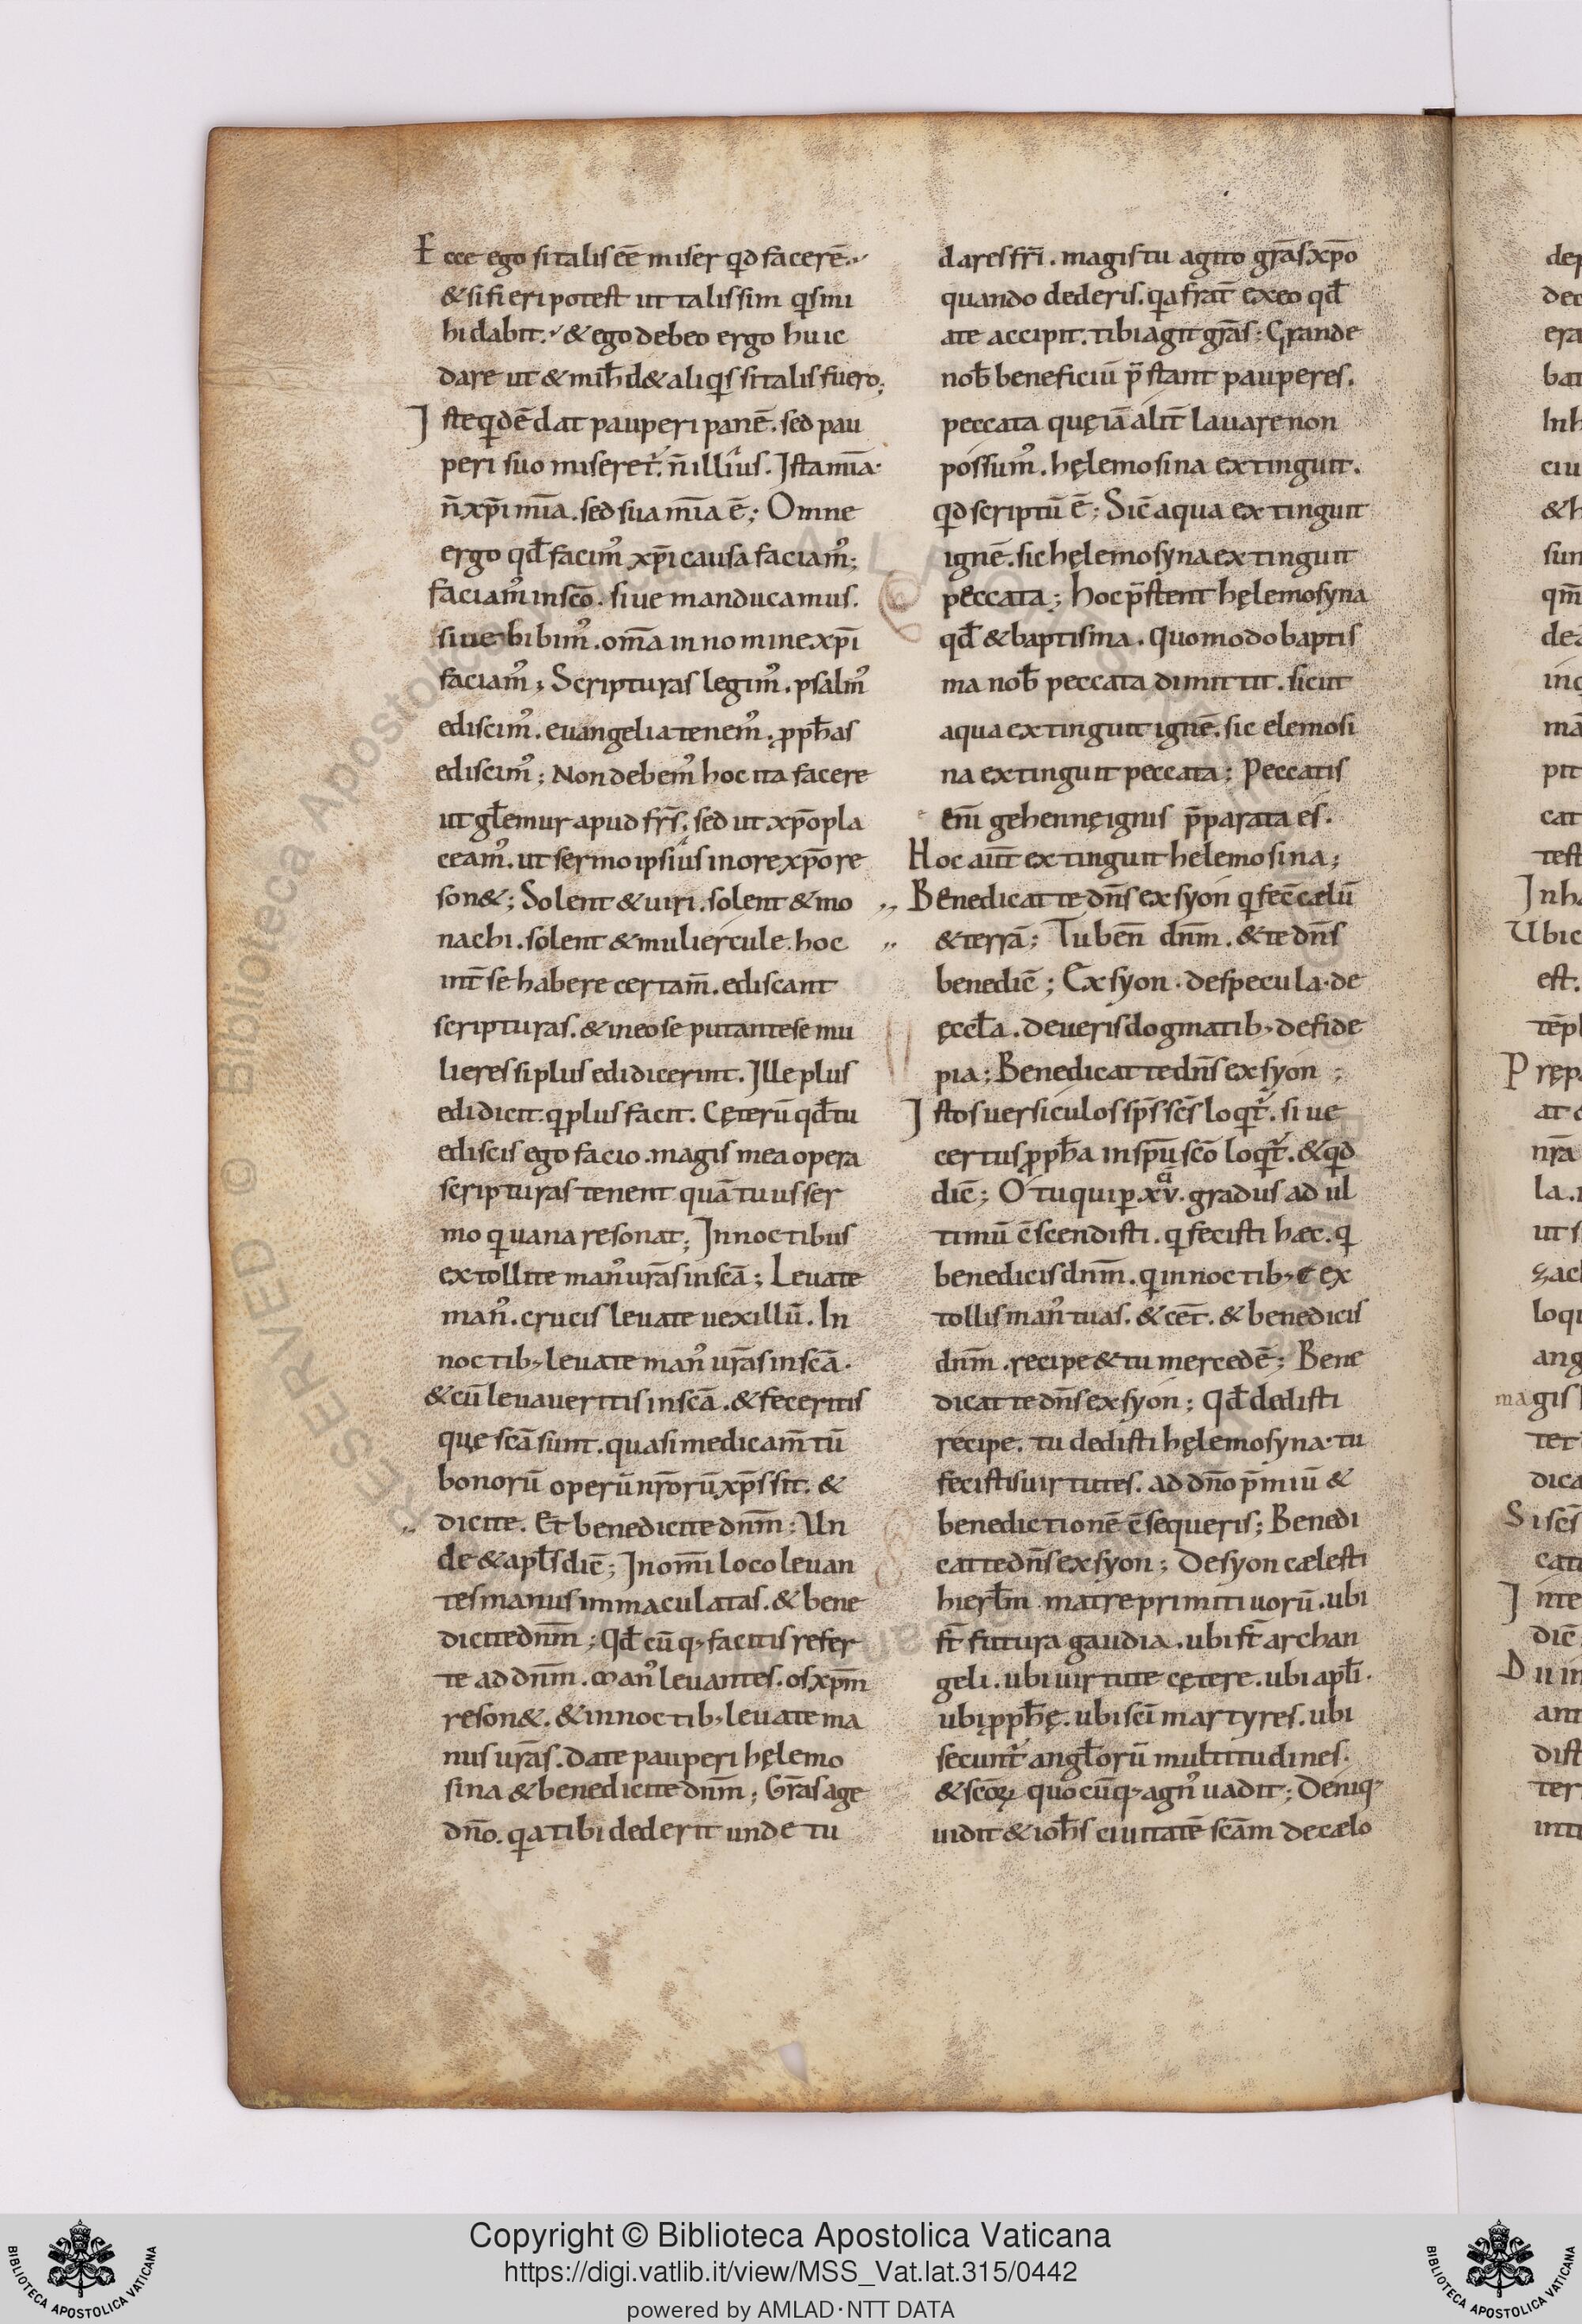 Ecce ego si talis eē miser qd facerē.
& si fieri potest ut talis sim qs mi
hi dabit. & ego debeo ergo huic
dare ut & mih̄ d& aliqs si talis fuero;
Iste qdē dat pauperi panē. sed pau
peri suo miseret̄. n̄ illius. Ista mīa.
n̄ xp̄i mīa. sed sua mīa ē; Omne
ergo qd̄ facim᾽ xp̄i causa faciam᾽;
faciam᾽ in sc̄o. siue manducamus.
siue bibim᾽. om̄a in nomine xp̄i
faciam᾽; Scripturas legim᾽. psalm᾽
ediscim᾽. euangelia tenem᾽. ꝓph̄as
ediscim᾽; Non debem᾽ hoc ita facere
ut gl̄emur apud fr̄s. sed ut xp̄o pla
ceam᾽. ut sermo ipsius in ore xp̄o re
son&; Solent & uiri. solent & mo
nachi. solent & muliercule. hoc
int̄ se habere certam̄. ediscant
scripturas. & in eo se putant ese mu
lieres si plus edidicerint. Ille plus
edidicit. q plus facit. Cęterū qd̄ tu
ediscis ego facio. magis mea opera
scripturas tenent quā tuus ser
mo q uana resonat; In noctibus
extollite man᾽ ur̄as in sc̄a; Leuate
man᾽. crucis leuate uexillū. In
noctib; leuate man᾽ ur̄as in sc̄a.
& cū leuaueritis in sc̄a. & feceritis
quę sc̄a sunt. quasi medicam̄tū
bonorū operū nr̄orū xp̄s sit. &
dicite. Et benedicite dnm̄; Un
de & apl̄s dic̄; In om̄i loco leuan
tes manus immaculatas. & bene
dicite dnm̄; Qd̄ cū q; facitis refer
te ad dnm̄. Man᾽ leuantes. os xp̄m
reson&. & in noctib; leuate ma
nus ur̄as. Date pauperi hęlemo
sina & benedicite dnm̄; Gr̄as age
dn̄o. qa tibi dederit unde tu
dares fr̄i. magis tu agito gr̄as xp̄o
quando dederis. qa frat̄ ex eo qd̄
a te accipit. tibi agit gr̄as; Grande
nob̄ beneficiū p̄stant pauperes.
peccata quę iā alit̄ lauare non
possum᾽. hęlemosina extinguit.
qd scriptū ē; Sic̄ aqua extinguit
ignē. sic hęlemosyna extinguit
peccata; hoc p̄stent hęlemosyna
qd̄ & baptisma. Quomodo baptis
ma nob̄ peccata dimittit. sicut
aqua extinguit ignē. sic elemosi
na extinguit peccata; Peccatis
eni̅ gehennę ignis p̄parata es.
Hoc aut̄ extinguit helemosina;
Benedicat te dn̄s ex syon q fec̄ cælū
& terrā; Tu ben̄ dnm̄. & te dn̄s
benedic̄; Ex syon. de specula. de
ęccl̄a. de ueris dogmatib; de fide
pia; Benedicat te dn̄s ex syon;
Istos uersiculos sp̄s sc̄s loqt̄. siue
certus ꝓph̄a in sp̄u sc̄o loqt̄. & qd
dic̄; O tu qui p̱ .xv. gradus ad ul
timū c̄scendisti. q fecisti hæc. q
benedicis dnm̄. q in noctib; ex
tollis man᾽ tuas. & cet̄. & benedicis
dnm̄. recipe & tu mercedē; Bene
dicat te dn̄s ex syon; Qd̄ dedisti
recipe. tu dedisti hęlemosyna. tu
fecisti suirtutes. ad dn̄o p̄miū &
benedictionē c̄sequeris; Benedi
cat te dn̄s ex syon; De syon cælesti
hierl̄m. matre primitiuorū. ubi
st̄ futura gaudia. ubi st̄ archan
geli. ubi uirtute cętere. ubi apl̄i.
ubi ꝓph̄ę. ubi sc̄i martyres. ubi
secunt̄ angl̄orū multitudines.
& sc̄oꝝ quo cūq; agn᾽ uadit; Deniq;
uidit & ioh̄s ciuitatē sc̄am de cælo
Copyright © Biblioteca Apostolica Vaticana
https://digi.vatlib.it/view/MSS_Vat.lat.315/0442
powered by AMLAD·NTT DATA